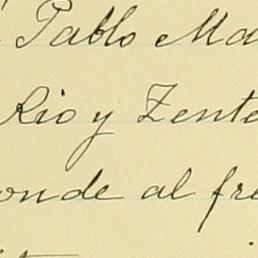 Pablo Ma
Rio y Zente
onde al fre